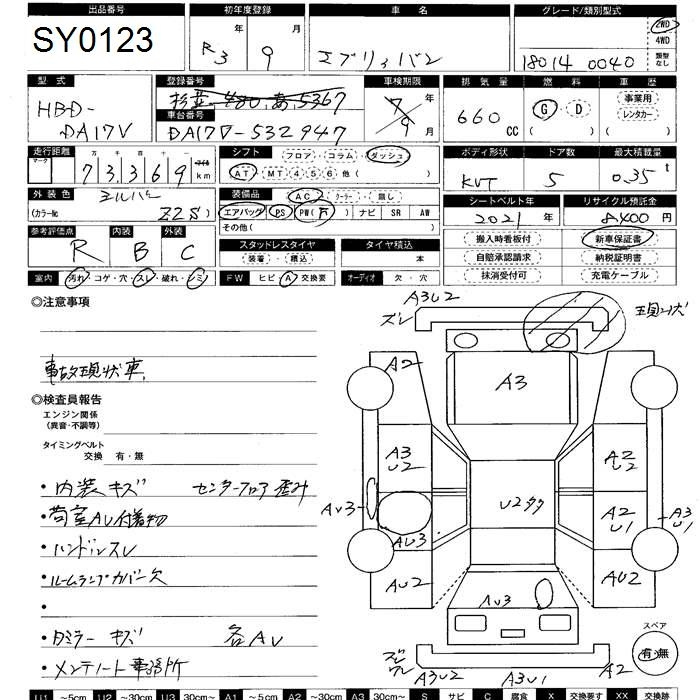 出品番号 初年度登録 車名 グレード/類別型式
SY0123 R3年 9月 エブリィバン 18014 0040 2WD 4WD 類型なし
型式 登録番号 車検期限 排気量 燃料 車歴
HBD-DA17V 480 あ 5367 7年 9月 660cc G・D ( ) 事業用 レンタカー ( )
車台番号
DA17V-532947
走行距離 シフト ボディ形状 ドア数 最大積載量
マーク 十万 万 千 百 十 一 マイル
73,369 km フロア・コラム・ダッシュ KVT 5 0.35t
AT・MT 4 5 6 他( )
外装色 装備品 シートベルト年 リサイクル預託金
シルバー AC・クーラー・無し 2021年 8400円
(カラーNo Z2S) エアバッグ PS PW(2) ナビ SR AW
その他( )
参考評価点 内装 外装 スタッドレスタイヤ タイヤ積込 搬入時看板付 新車保証書
R B C 装着・積込 本 自賠承認請求 納税証明書
室内 汚れ・コゲ・穴・スレ・破れ・シミ FW ヒビ・A・交換要 オーディオ 欠・穴 抹消受付可 充電ケーブル
◎注意事項
事故現状車
◎検査員報告
エンジン関係
(異音・不調等)
タイミングベルト
交換 有・無
・内装キズ センターフロア歪み
・荷室AU付着物
・ハンドルスレ
・ルームランプカバー欠
・
・Dミラーキズ 各AU
・メンテノート事務所
A3U2
ズレ
現状
A2
A3
A3
U2
A2
U2
U2タタ
AU3
AU3
A2
U1
A3
U1
AU2
AU2
AU3
A3U2
A3U1
A2
スペア
有・無
U1 ~5cm U2 ~30cm U3 30cm~ A1 ~5cm A2 ~30cm A3 30cm~ S サビ C 腐食 X 交換要す XX 交換跡